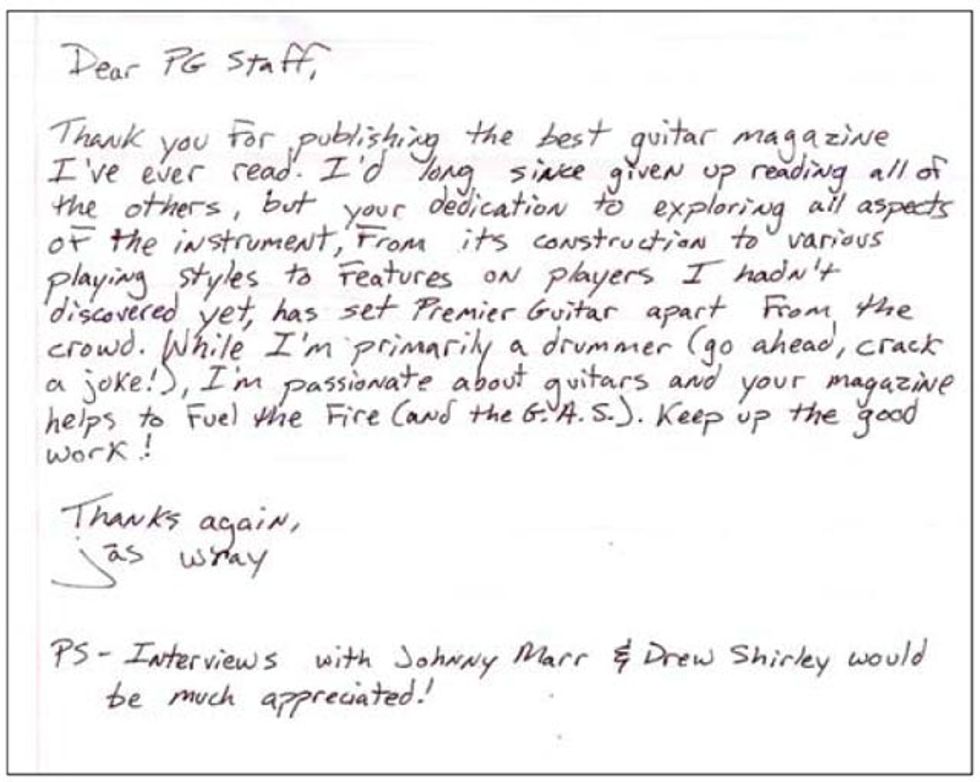 Dear PG Staff,
Thank you for publishing the best guitar magazine
I've ever read. I'd long since given up reading all of
the others, but your dedication to exploring all aspects
of the instrument, from its construction to various
playing styles to features on players I hadn't
discovered yet, has set Premier Guitar apart from the
crowd. While I'm primarily a drummer (go ahead, crack
a joke!), I'm passionate about guitars and your magazine
helps to fuel the fire (and the G.A.S.). Keep up the good
work!
Thanks again,
jas wray
PS - Interviews with Johnny Marr & Drew Shirley would
be much appreciated!